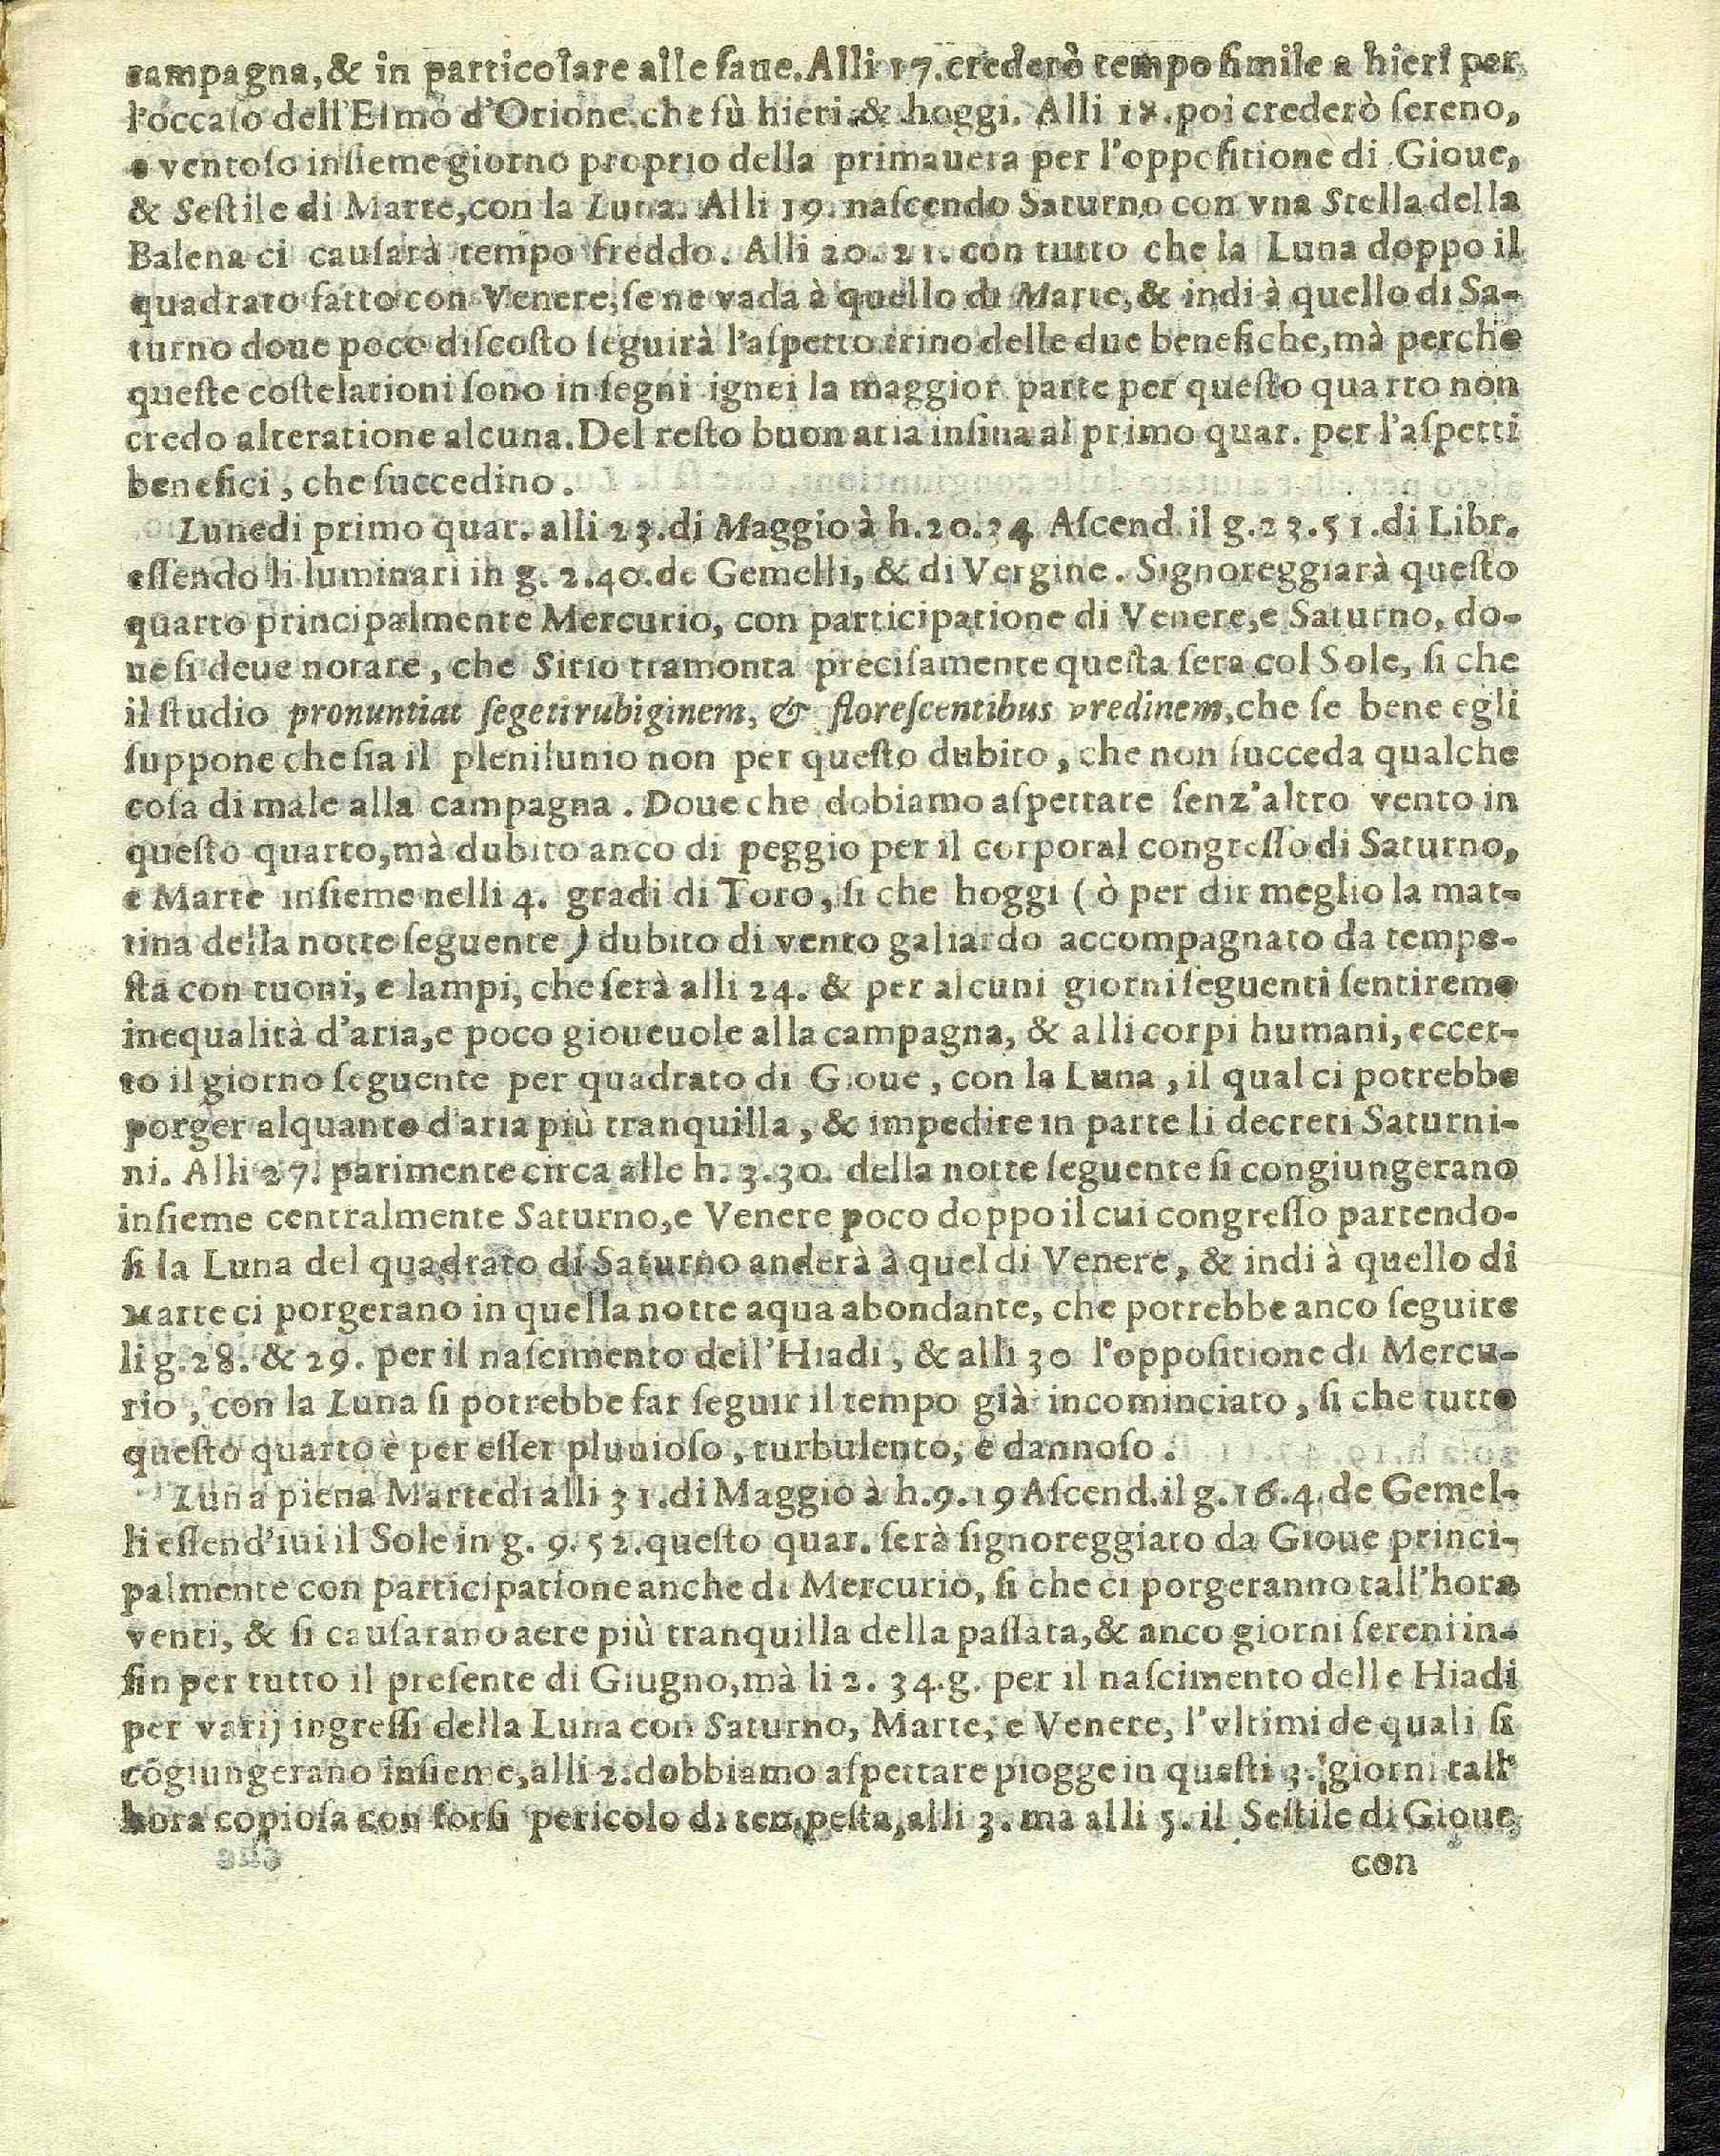 campagna, & in particolare alle faue. Alli 17. crederò tempo simile a hieri per
l'occaso dell'Elmo d'Orione. che fù hieri. & hoggi. Alli 18. poi crederò sereno,
e ventoso insieme giorno proprio della primauera per l'oppositione di Gioue,
& Sestile di Marte, con la Luna. Alli 19. nascendo Saturno con vna Stella della
Balena ci causarà tempo freddo. Alli 20. 21. con tutto che la Luna doppo il
quadrato fatto con Venere, se ne vada à quello di Marte, & indi à quello di Sa-
turno doue poco discosto seguirà l'aspetto trino delle due benefiche, mà perche
queste costelationi sono in segni ignei la maggior parte per questo quarto non
credo alteratione alcuna. Del resto buon aria insina al primo quar. per l'aspetti
benefici, che succedino.
Lunedi primo quar. alli 23. di Maggio à h. 20. 34 Ascend. il g. 23. 51. di Libr.
essendo li luminari in g. 2. 40. de Gemelli, & di Vergine. Signoreggiarà questo
quarto principalmente Mercurio, con participatione di Venere, e Saturno, do-
ue si deue notare, che Sirio tramonta precisamente questa sera col Sole, si che
il studio pronuntiat segeti rubiginem, & florescentibus vredinem, che se bene egli
suppone che sia il plenilunio non per questo dubito, che non succeda qualche
cosa di male alla campagna. Doue che dobiamo aspettare senz'altro vento in
questo quarto, mà dubito anco di peggio per il corporal congresso di Saturno,
e Marte insieme nelli 4. gradi di Toro, si che hoggi ( ò per dir meglio la mat-
tina della notte seguente ) dubito di vento galiardo accompagnato da tempe-
sta con tuoni, e lampi, che serà alli 24. & per alcuni giorni seguenti sentiremo
inequalità d'aria, e poco gioueuole alla campagna, & alli corpi humani, eccet-
to il giorno seguente per quadrato di Gioue, con la Luna, il qual ci potrebbe
porger alquanto d'aria più tranquilla, & impedire in parte li decreti Saturni-
ni. Alli 27. parimente circa alle h. 3. 30. della notte seguente si congiungerano
insieme centralmente Saturno, e Venere poco doppo il cui congresso partendo-
si la Luna del quadrato di Saturno anderà à quel di Venere, & indi à quello di
Marte ci porgerano in quella notte aqua abondante, che potrebbe anco seguire
li g. 28. & 29. per il nascimento dell'Hiadi, & alli 30 l'oppositione di Mercu-
rio, con la Luna si potrebbe far seguir il tempo già incominciato, si che tutto
questo quarto è per esser pluuioso, turbulento, e dannoso.
Luna piena Martedi alli 31. di Maggio à h. 9. 19 Ascend. il g. 16. 4. de Gemel-
li essend'iui il Sole in g. 9. 52. questo quar. serà signoreggiato da Gioue princi-
palmente con participatione anche di Mercurio, si che ci porgeranno tall'hora
venti, & si causarano aere più tranquilla della passata, & anco giorni sereni in-
sin per tutto il presente di Giugno, mà li 2. 3 4. g. per il nascimento delle Hiadi
per varij ingressi della Luna con Saturno, Marte, e Venere, l'vltimi de quali si
cōgiungerano insieme, alli 2. dobbiamo aspettare piogge in questi 3. giorni tall'
hora copiosa con forsi pericolo di tempesta, alli 3. ma alli 5. il Sestile di Gioue
con